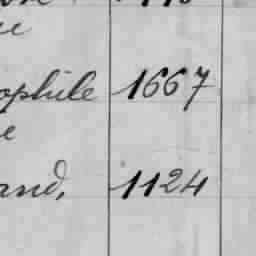 ophile 1667
and, 1124